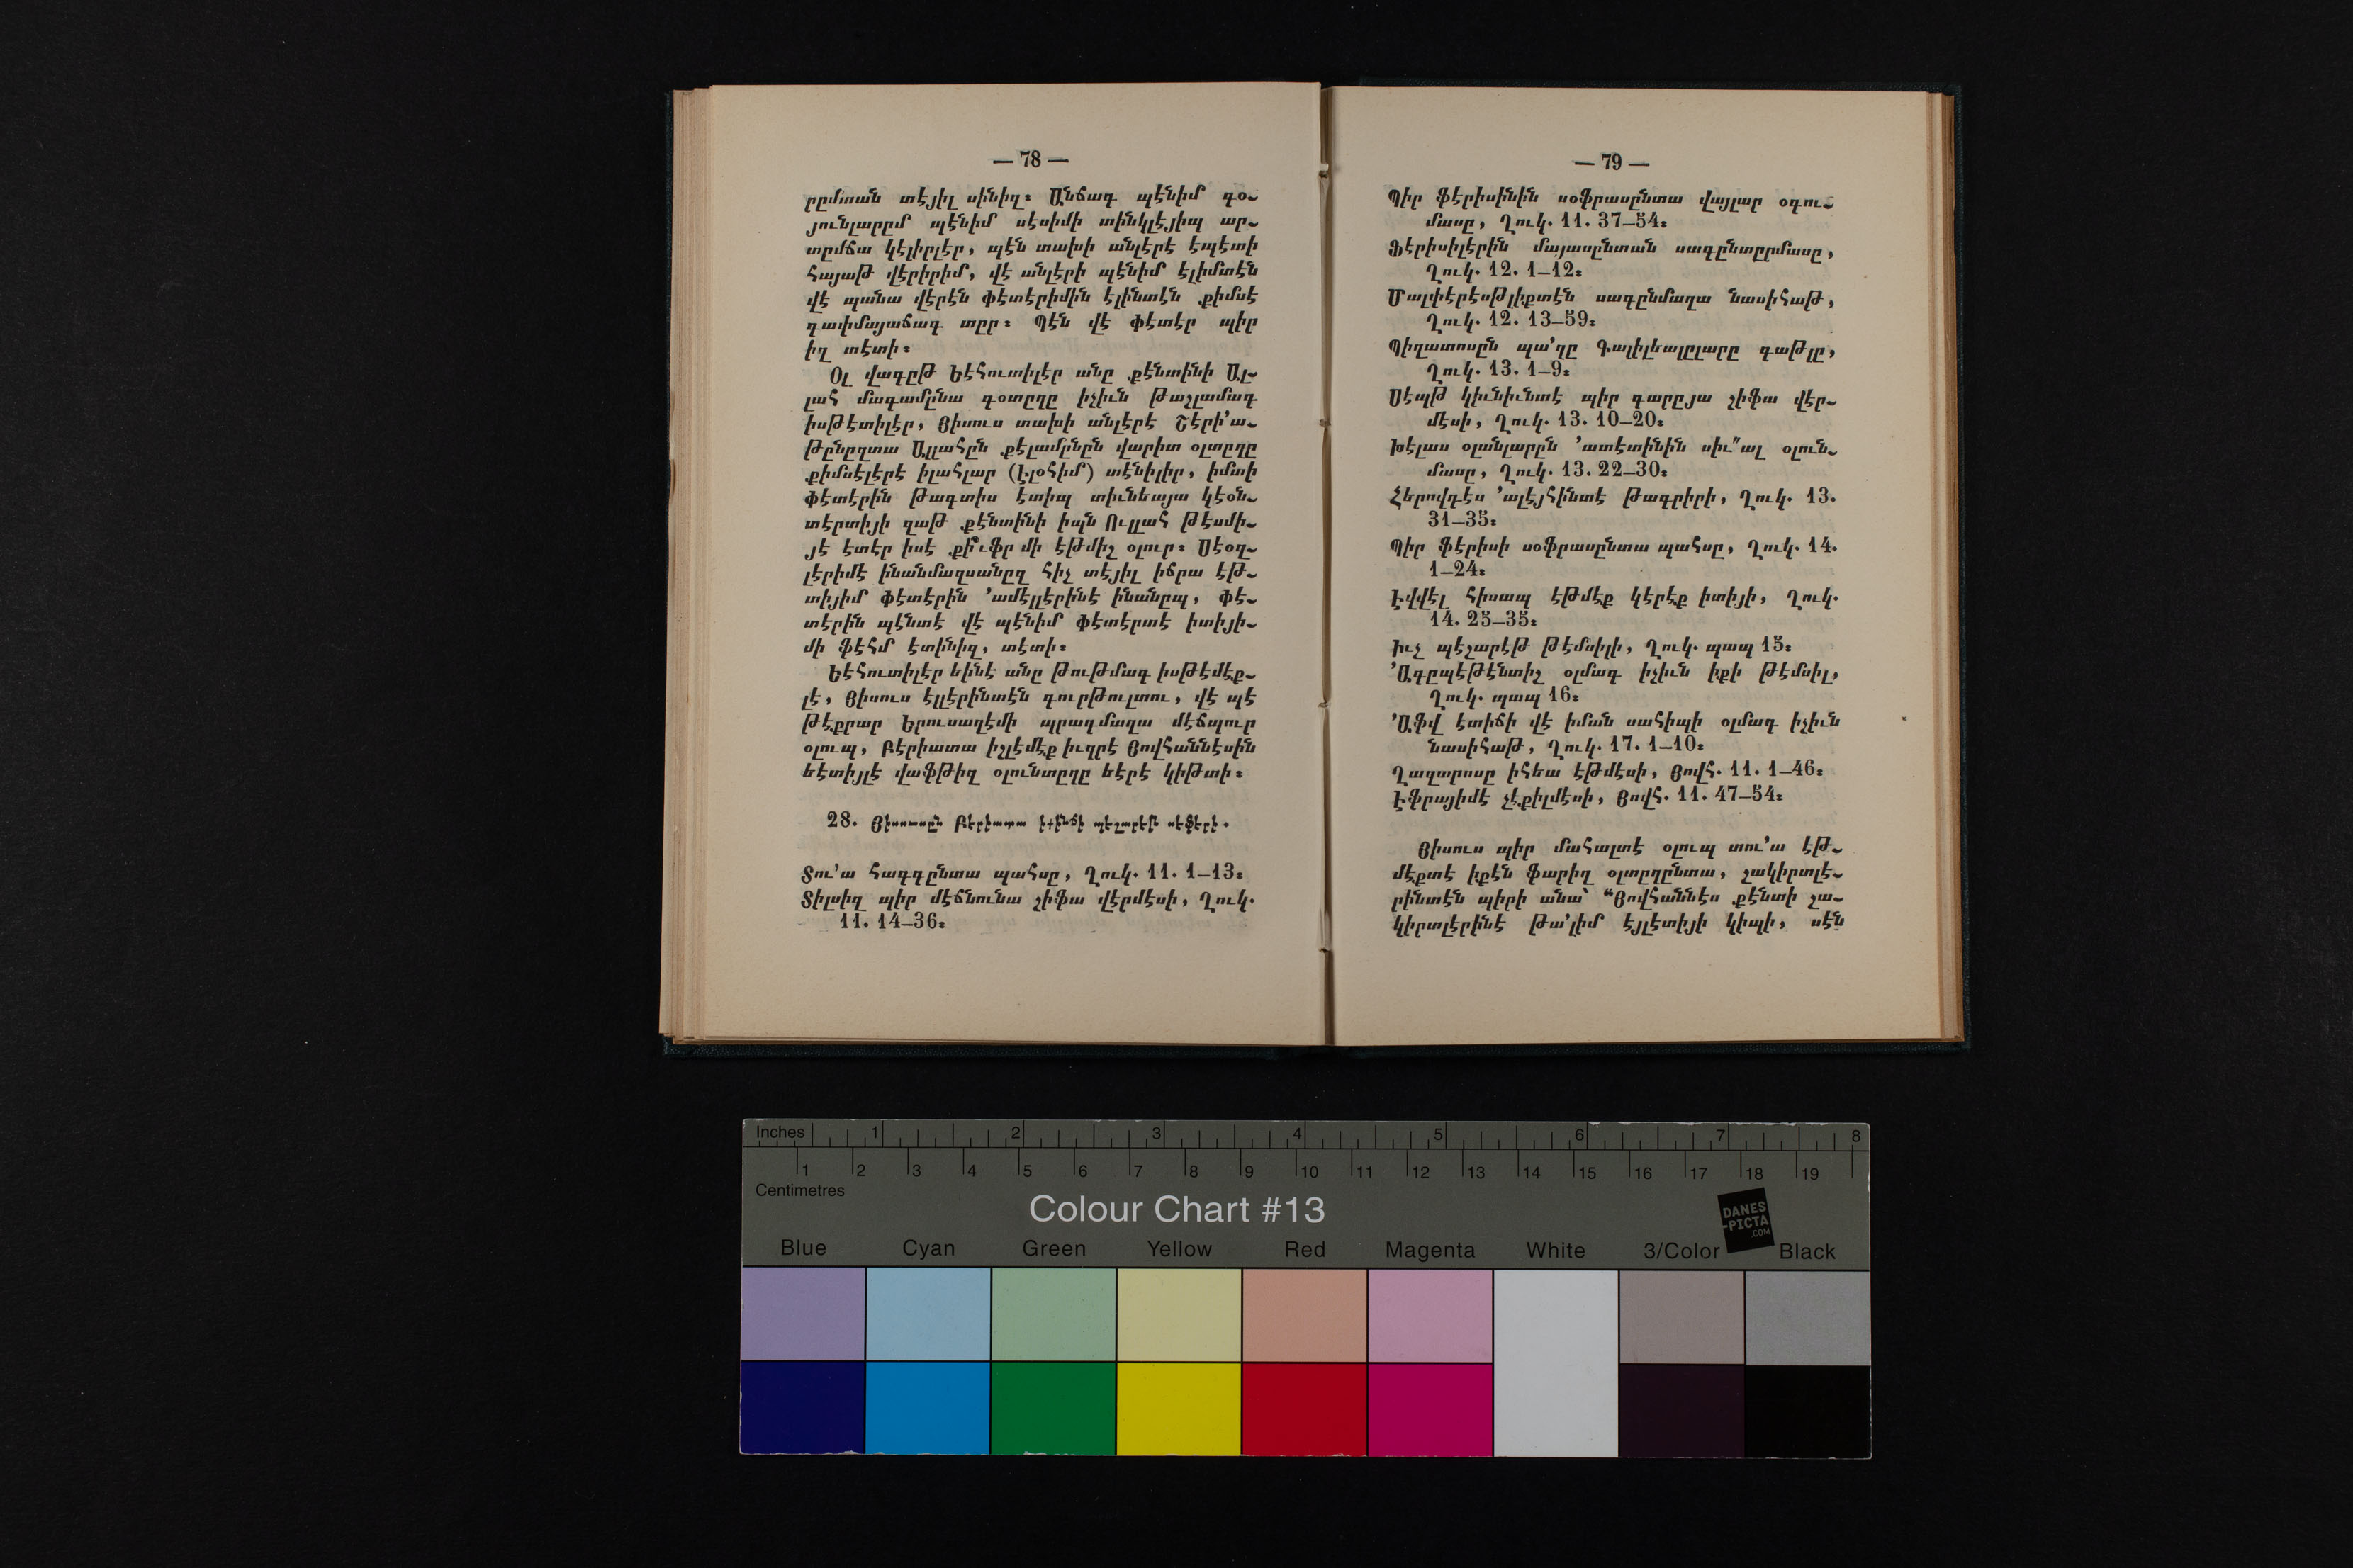 — 78 —
րըմտան տէյիլ սինիզ։ Անճագ պէնիմ գօ֊
յունլարըմ պէնիմ սէսիմի տինկլէյիպ ար֊
տըմճա կէլիրլէր, պէն տախի անլէրէ էպէտի
հայաթ վէրիրիմ, վէ անլէրի պէնիմ էլիմտէն
վէ պանա վէրէն Փէտէրիմին էլինտէն քիմսէ
գափմայաճագ տըր։ Պէն վէ Փէտէր պիր
իզ տէտի։
Օլ վագըթ Եէհուտիլէր անը քէնտինի Ալ֊
լահ մագամընա գօտըղը իչիւն թաշլամագ
իսթէտիլէր, Յիսուս տախի անլէրէ Շէրի՚ա֊
թընըզտա Ալլահըն քէլամընըն վարիտ օլտըղը
քիմսէլէրէ իլահլար (Էլօհիմ) տէնիլիր, իմտի
Փէտէրին թագտիս էտիպ տիւնեայա կէօն֊
տէրտիյի զաթ քէնտինի իպն Ուլլահ թէսմի֊
յէ էտէր իսէ քիւֆր մի էթմիշ օլուր։ Սէօզ֊
լէրիմէ ինանմազսանըզ հիչ տէյիլ իճրա էթ֊
տիյիմ Փէտէրին ՚ամէլլէրինէ ինանըպ, Փէ֊
տէրին պէնտէ վէ պէնիմ Փէտէրտէ իտիյի֊
մի ֆէհմ էտինիզ, տէտի։
Եէհուտիլէր եինէ անը թութմագ իսթէմէք֊
լէ, Յիսուս էլլէրինտէն գուրթուլտու, վէ պէ
թէքրար Երուսաղէմի պրագմաղա մէճպուր
օլուպ, Բէրիատա իշլէմէք իւզրէ Յովհաննէսին
եէտիյլէ վաֆթիզ օլունտըղը եէրէ կիթտի։
28. Յիսուսըն Բէրիատա իքինճի պէշարէթ սէֆէրի.
Տու՚ա հագգընտա պահսը, Ղուկ. 11. 1–13։
Տիլսիզ պիր մէճնունա շիֆա վէրմէսի, Ղուկ.
11. 14–36։
— 79 —
Պիր ֆէրիսինին սօֆրասընտա վայլար օգու֊
մասը, Ղուկ. 11. 37–54։
Ֆէրիսիլէրին մայասընտան սագընտըրմասը,
Ղուկ. 12. 1–12։
Մալփէրէսթլիքտէն սագընմաղա նասիհաթ,
Ղուկ. 12. 13–59։
Պիղատոսըն պա՚զը Գալիլեալըլարը գաթլը,
Ղուկ. 13. 1–9։
Սէպթ կիւնիւնտէ պիր գարըյա շիֆա վէր֊
մէսի, Ղուկ. 13. 10–20։
Խէլաս օլանլարըն ՚ատէտինին սիւ՚ալ օլուն֊
մասը, Ղուկ. 13. 22–30։
Հերովդէս ՚ալէյհինտէ թագրիրի, Ղուկ. 13.
31–35։
Պիր ֆէրիսի սօֆրասընտա պահսը, Ղուկ. 14.
1–24։
Էվվէլ հիսապ էթմէք կէրէք իտիյի, Ղուկ.
14. 25–35։
Իւչ պէշարէթ թէմսիլի, Ղուկ. պապ 15։
՚Ագըպէթէնտիշ օլմագ իչիւն իքի թէմսիլ,
Ղուկ. պապ 16։
՚Աֆվ էտիճի վէ իման սահիպի օլմագ իչիւն
նասիհաթ, Ղուկ. 17. 1–10։
Ղազարոսը իհեա էթմէսի, Յովհ. 11. 1–46։
Էֆրայիմէ չէքիլմէսի, Յովհ. 11. 47–54։
Յիսուս պիր մահալտէ օլուպ տու՚ա էթ֊
մէքտէ իքէն ֆարիղ օլտըղընտա, շակիրտլէ֊
րինտէն պիրի անա՝ “Յովհաննէս քէնտի շա֊
կիրտլէրինէ թա՚լիմ էյլէտիյի կիպի, սէն
Inches 1 2 3 4 5 6 7 8
1 2 3 4 5 6 7 8 9 10 11 12 13 14 15 16 17 18 19
Centimetres
Colour Chart #13
DANES
-PICTA
.COM
Blue Cyan Green Yellow Red Magenta White 3/Color Black